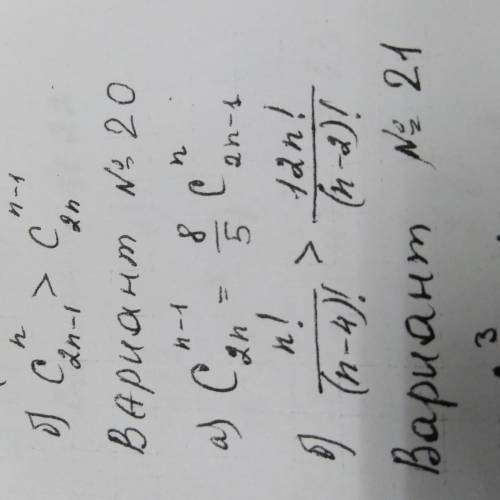 б) C_{2n-1}^{n} > C_{2n}^{n-1}
Вариант № 20
а) C_{2n}^{n-1} = \frac{8}{5} C_{2n-1}^{n}
б) \frac{n!}{(n-4)!} > \frac{12n!}{(n-2)!}
Вариант № 21
3